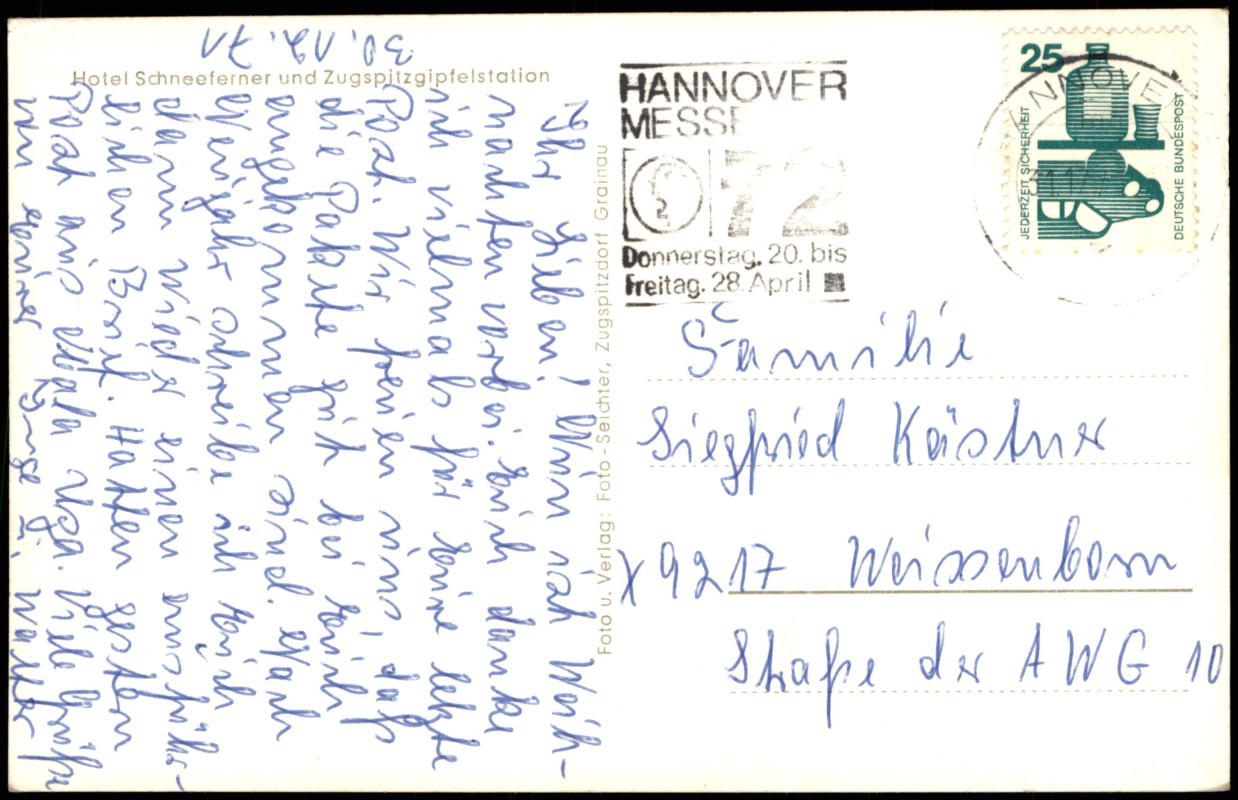 Hotel Schneeferner und Zugspitzgipfelstation
30.12.71
Ihr Lieben! Nun ist Weih-
nachten vorbei. Euch danke
ich vielmals für Eure letzte
Post. Wir freuen uns, daß
die Pakete gut bei Euch
angekommen sind. Nach
Neujahr schreibe ich Euch
dann wieder einen ausführ-
lichen Brief. Hatten gestern
Post aus Uga. Viele Grüße
von Eurer Inge u. Walter
Foto u. Verlag: Foto-Seichter, Zugspitzdorf Grainau
HANNOVER
MESSE
72
Donnerstag, 20. bis
Freitag, 28. April
25
JEDERZEIT SICHERHEIT
DEUTSCHE BUNDESPOST
Familie
Siegfried Kästner
X 9217 Weissenborn
Straße der AWG 10